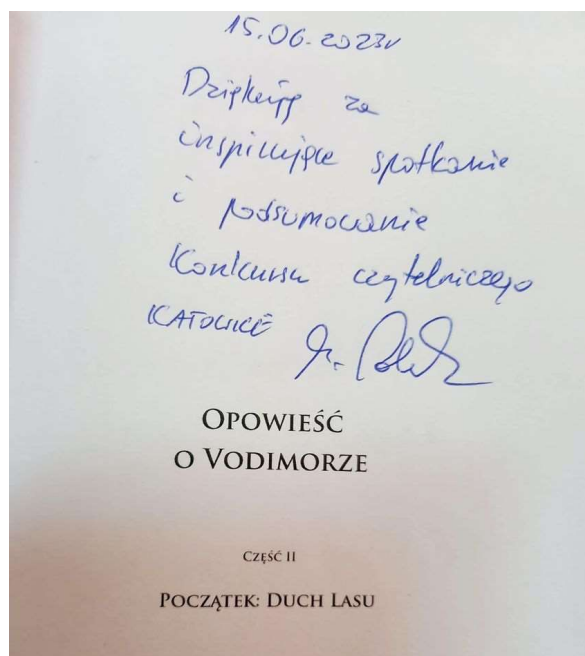 15.06.2023r
Dziękuję za
inspirujące spotkanie
i podsumowanie
Konkursu czytelniczego
KATOWICE
OPOWIEŚĆ
O VODIMORZE
CZĘŚĆ II
POCZĄTEK: DUCH LASU